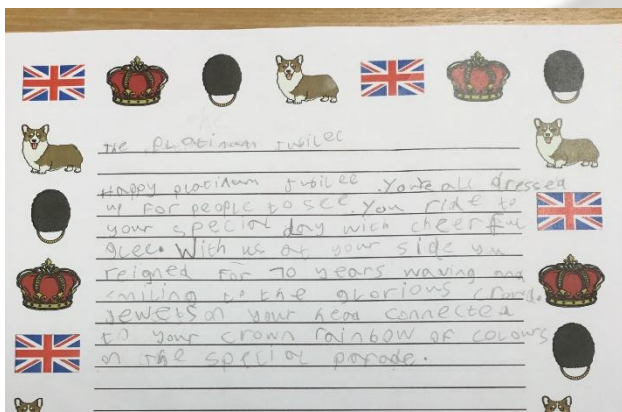 The Platinum Jubilee
Happy platinum Jubilee. You're all dressed
up for people to see. You ride to
your special day with cheerful
glee. With us at your side you
reigned for 70 years waving and
smiling to the glorious crowd.
Jewels on your head connected
to your crown rainbow of colours
on the special parade.